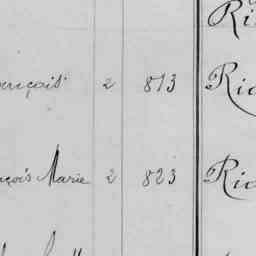 Ri
ançois 2 813 Ric
nçois Marie 2 823 Ric